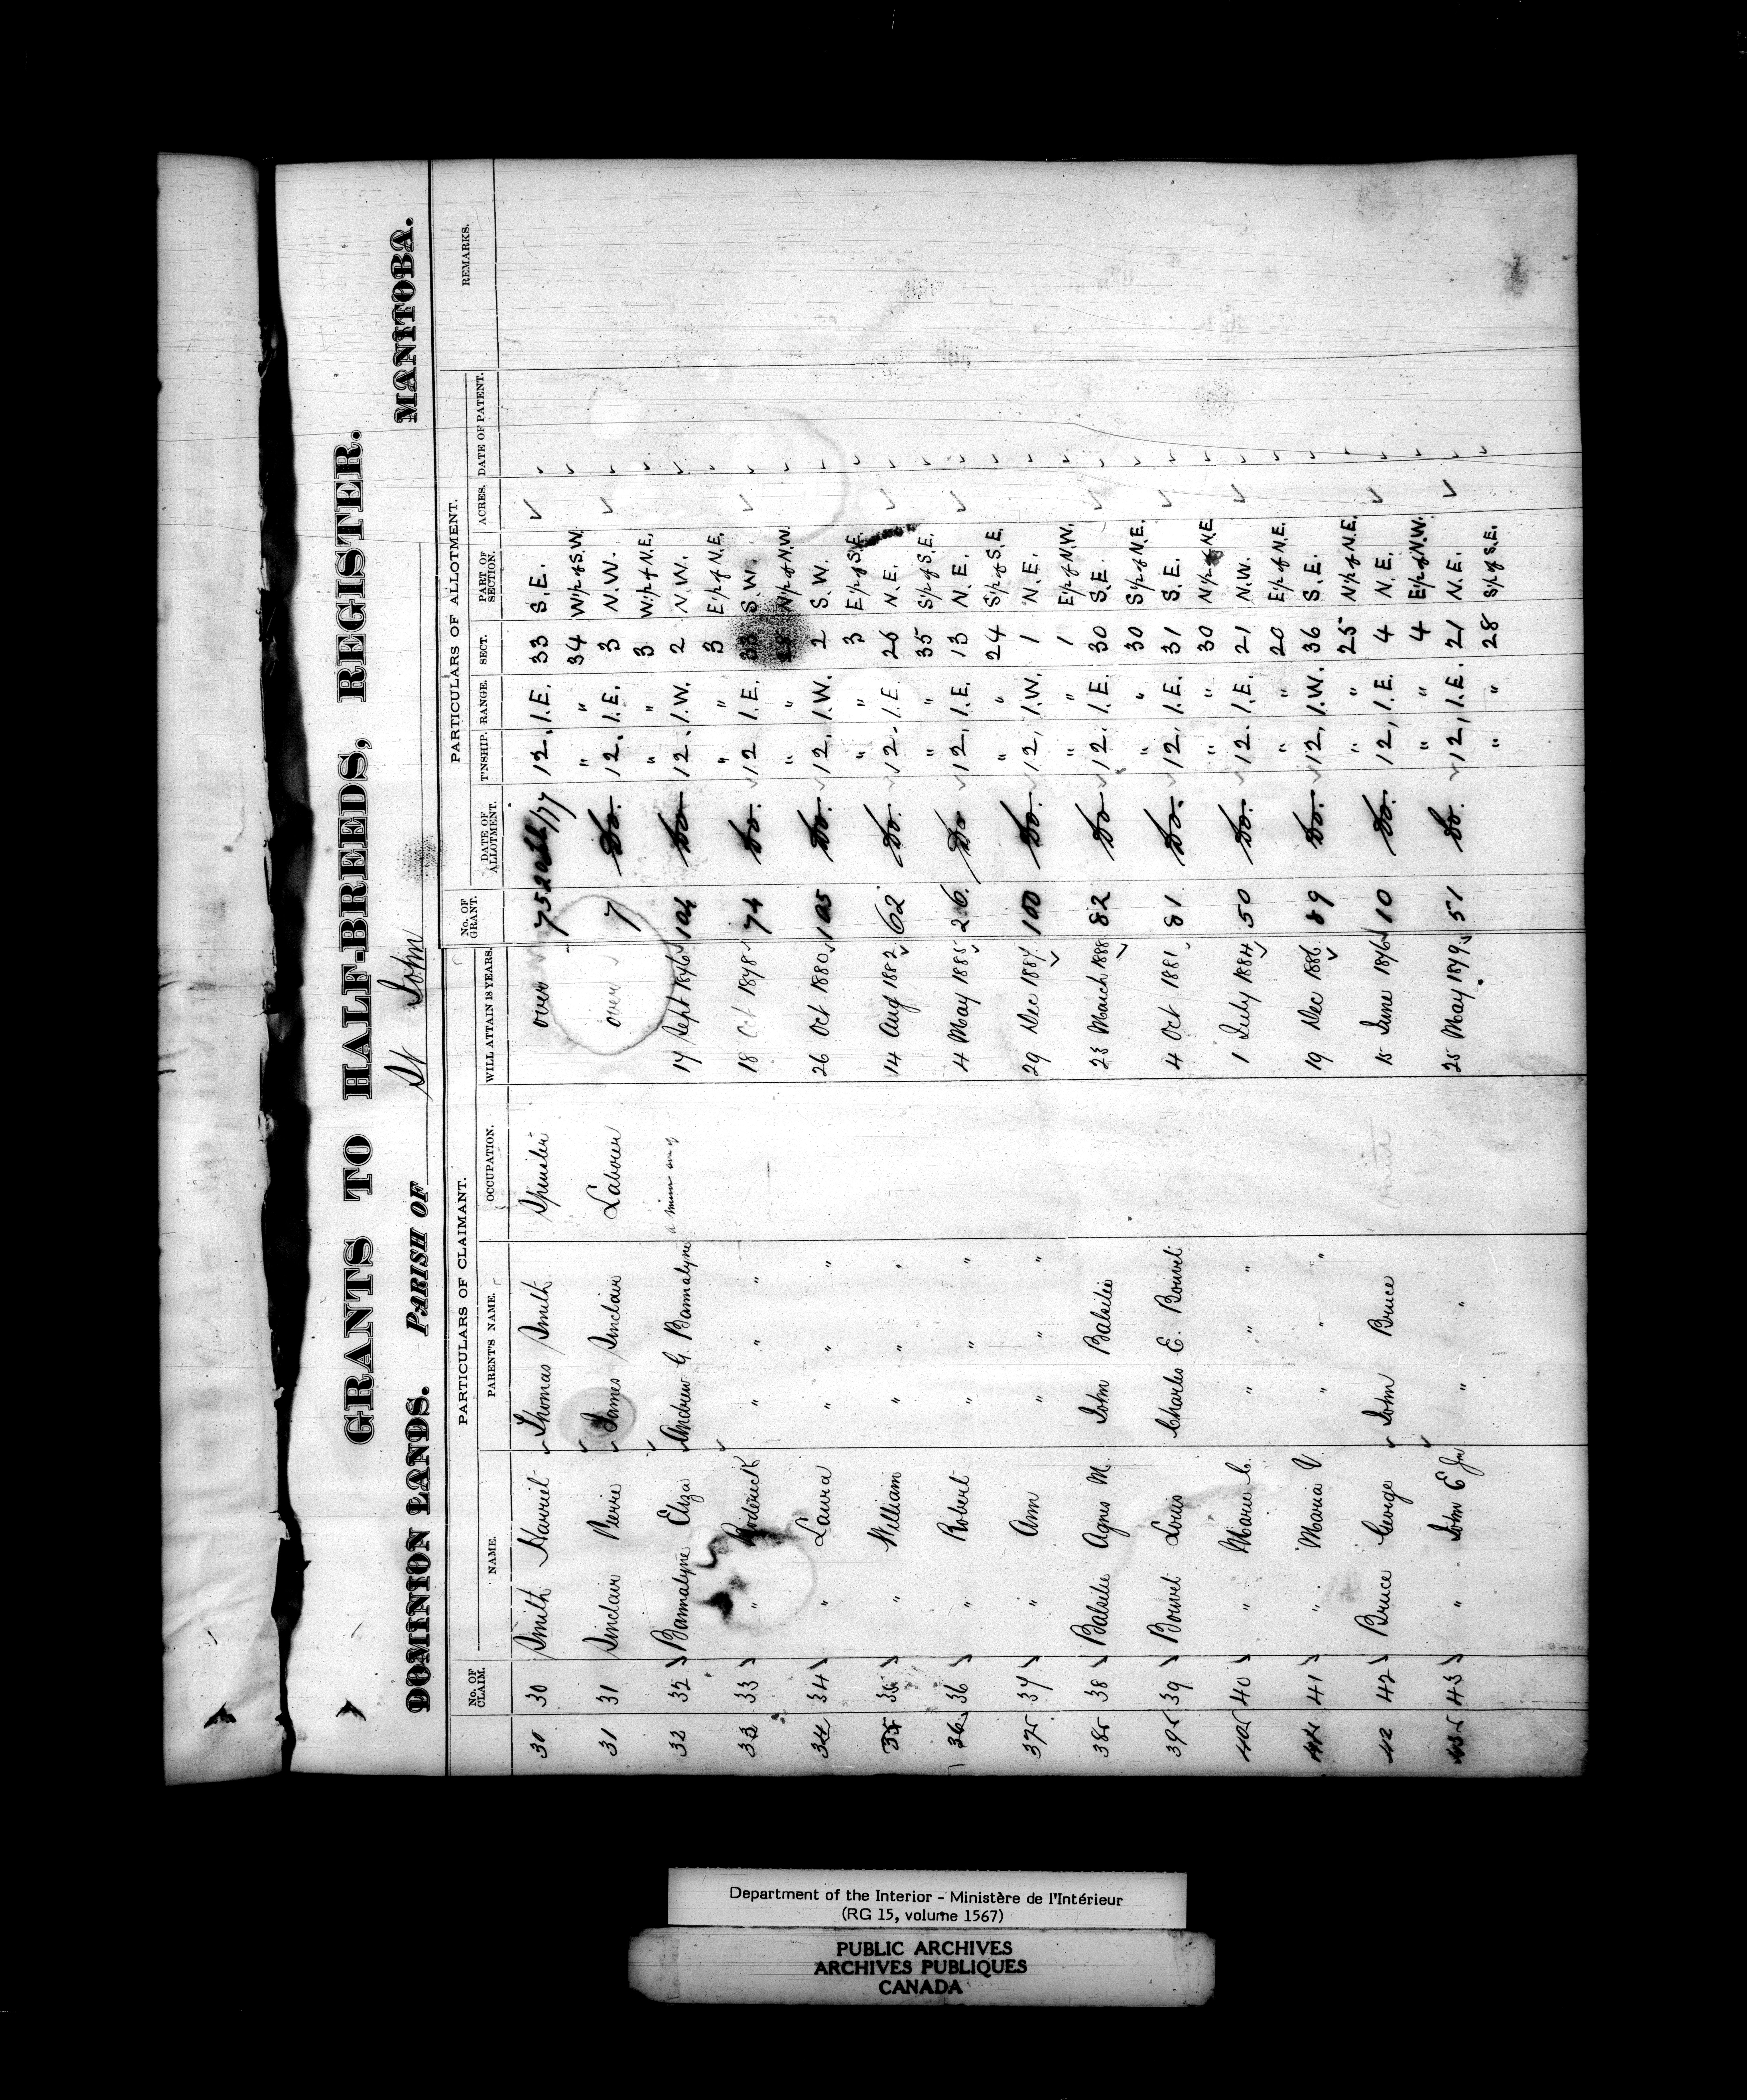 GRANTS TO HALF-BREEDS, REGISTER.
DOMINION LANDS. PARISH OF St John MANITOBA.
PARTICULARS OF CLAIMANT. PARTICULARS OF ALLOTMENT.
No. OF CLAIM. NAME. PARENT'S NAME. OCCUPATION. WILL ATTAIN 18 YEARS. No. OF GRANT. DATE OF ALLOTMENT. T'NSHIP. RANGE. SECT. PART OF SECTION. ACRES. DATE OF PATENT. REMARKS.
30 30 Smith Harriet Thomas Smith Spinster over 75 12. 1.E. 33 S.E.
" " 34 W½ of S.W.
31 31 Sinclair Pierre James Sinclair Labourer over 7 Do. 12. 1.E. 3 N.W.
" " 3 W½ of N.E.
32 32 Bannatyne Eliza Andrew G. Bannatyne 17 Sept 1876 104 Do 12. 1.W. 2 N.W.
" " 3 E½ of N.E.
33 33 " Roderick " " " 18 Oct 1878 74 Do. 12 1.E. 33 S.W.
" " 28 N½ of N.W.
34 34 " Laura " " " 26 Oct 1880 105 Do. 12. 1.W. 2 S.W.
" " 3 E½ of S.E.
35 35 " William " " " 14 Aug 1882 62 Do. 12. 1.E. 26 N.E.
" " 35 S½ of S.E.
36 36 " Robert " " " 4 May 1885 26. Do 12, 1.E. 13 N.E.
" " 24 S½ of S.E.
37 37 " Ann " " " 29 Dec 1887 100 Do. 12, 1.W. 1 N.E.
" " 1 E½ of N.W.
38 38 Balsilie Agnes M. John Balsilie 23 March 1888 82 Do 12. 1.E. 30 S.E.
" " 30 S½ of N.E.
39 39 Bouvet Louis Charles E. Bouvet 4 Oct 1881 81 Do. 12, 1.E. 31 S.E.
" " 30 N½ of N.E.
40 40 " Marie C. " " " 1 July 1884 50 Do. 12. 1.E. 21 N.W.
" " 20 E½ of N.E.
41 41 " Maria V. " " " 19 Dec 1886 89 Do. 12, 1.W. 36 S.E.
" " 25 N½ of N.E.
42 42 Bruce George John Bruce 15 June 1876 10 Do. 12, 1.E. 4 N.E.
" " 4 E½ of N.W.
43 43 " John E Jnr " " 25 May 1879. 51 Do. 12, 1.E. 21 N.E.
" " 28 S½ of S.E.
Department of the Interior - Ministère de l'Intérieur
(RG 15, volume 1567)
PUBLIC ARCHIVES
ARCHIVES PUBLIQUES
CANADA